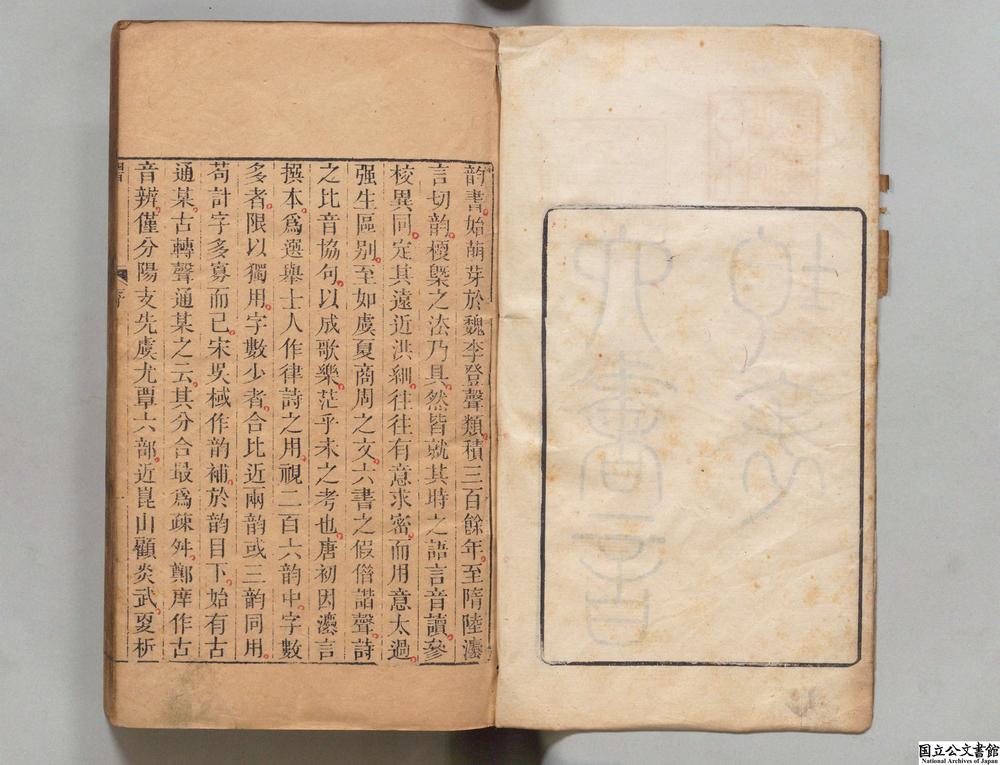 韵書始萌芽於魏李登聲類積三百餘年至隋陸灋
言切韵梗槩之法乃具然皆就其時之語言音讀參
校異同定其遠近洪細往往有意求密而用意太過
强生區別至如虞夏商周之文六書之假借諧聲詩
之比音協句以成歌樂茫乎未之考也唐初因灋言
撰本爲選舉士人作律詩之用視二百六韵中字數
多者限以獨用字數少者合比近兩韵或三韵同用
苟計字多寡而已宋吳棫作韵補於韵目下始有古
通某古轉聲通某之云其分合最爲疎舛鄭庠作古
音辨僅分陽支先虞尤覃六部近崑山顧炎武夏析
国立公文書館
National Archives of Japan